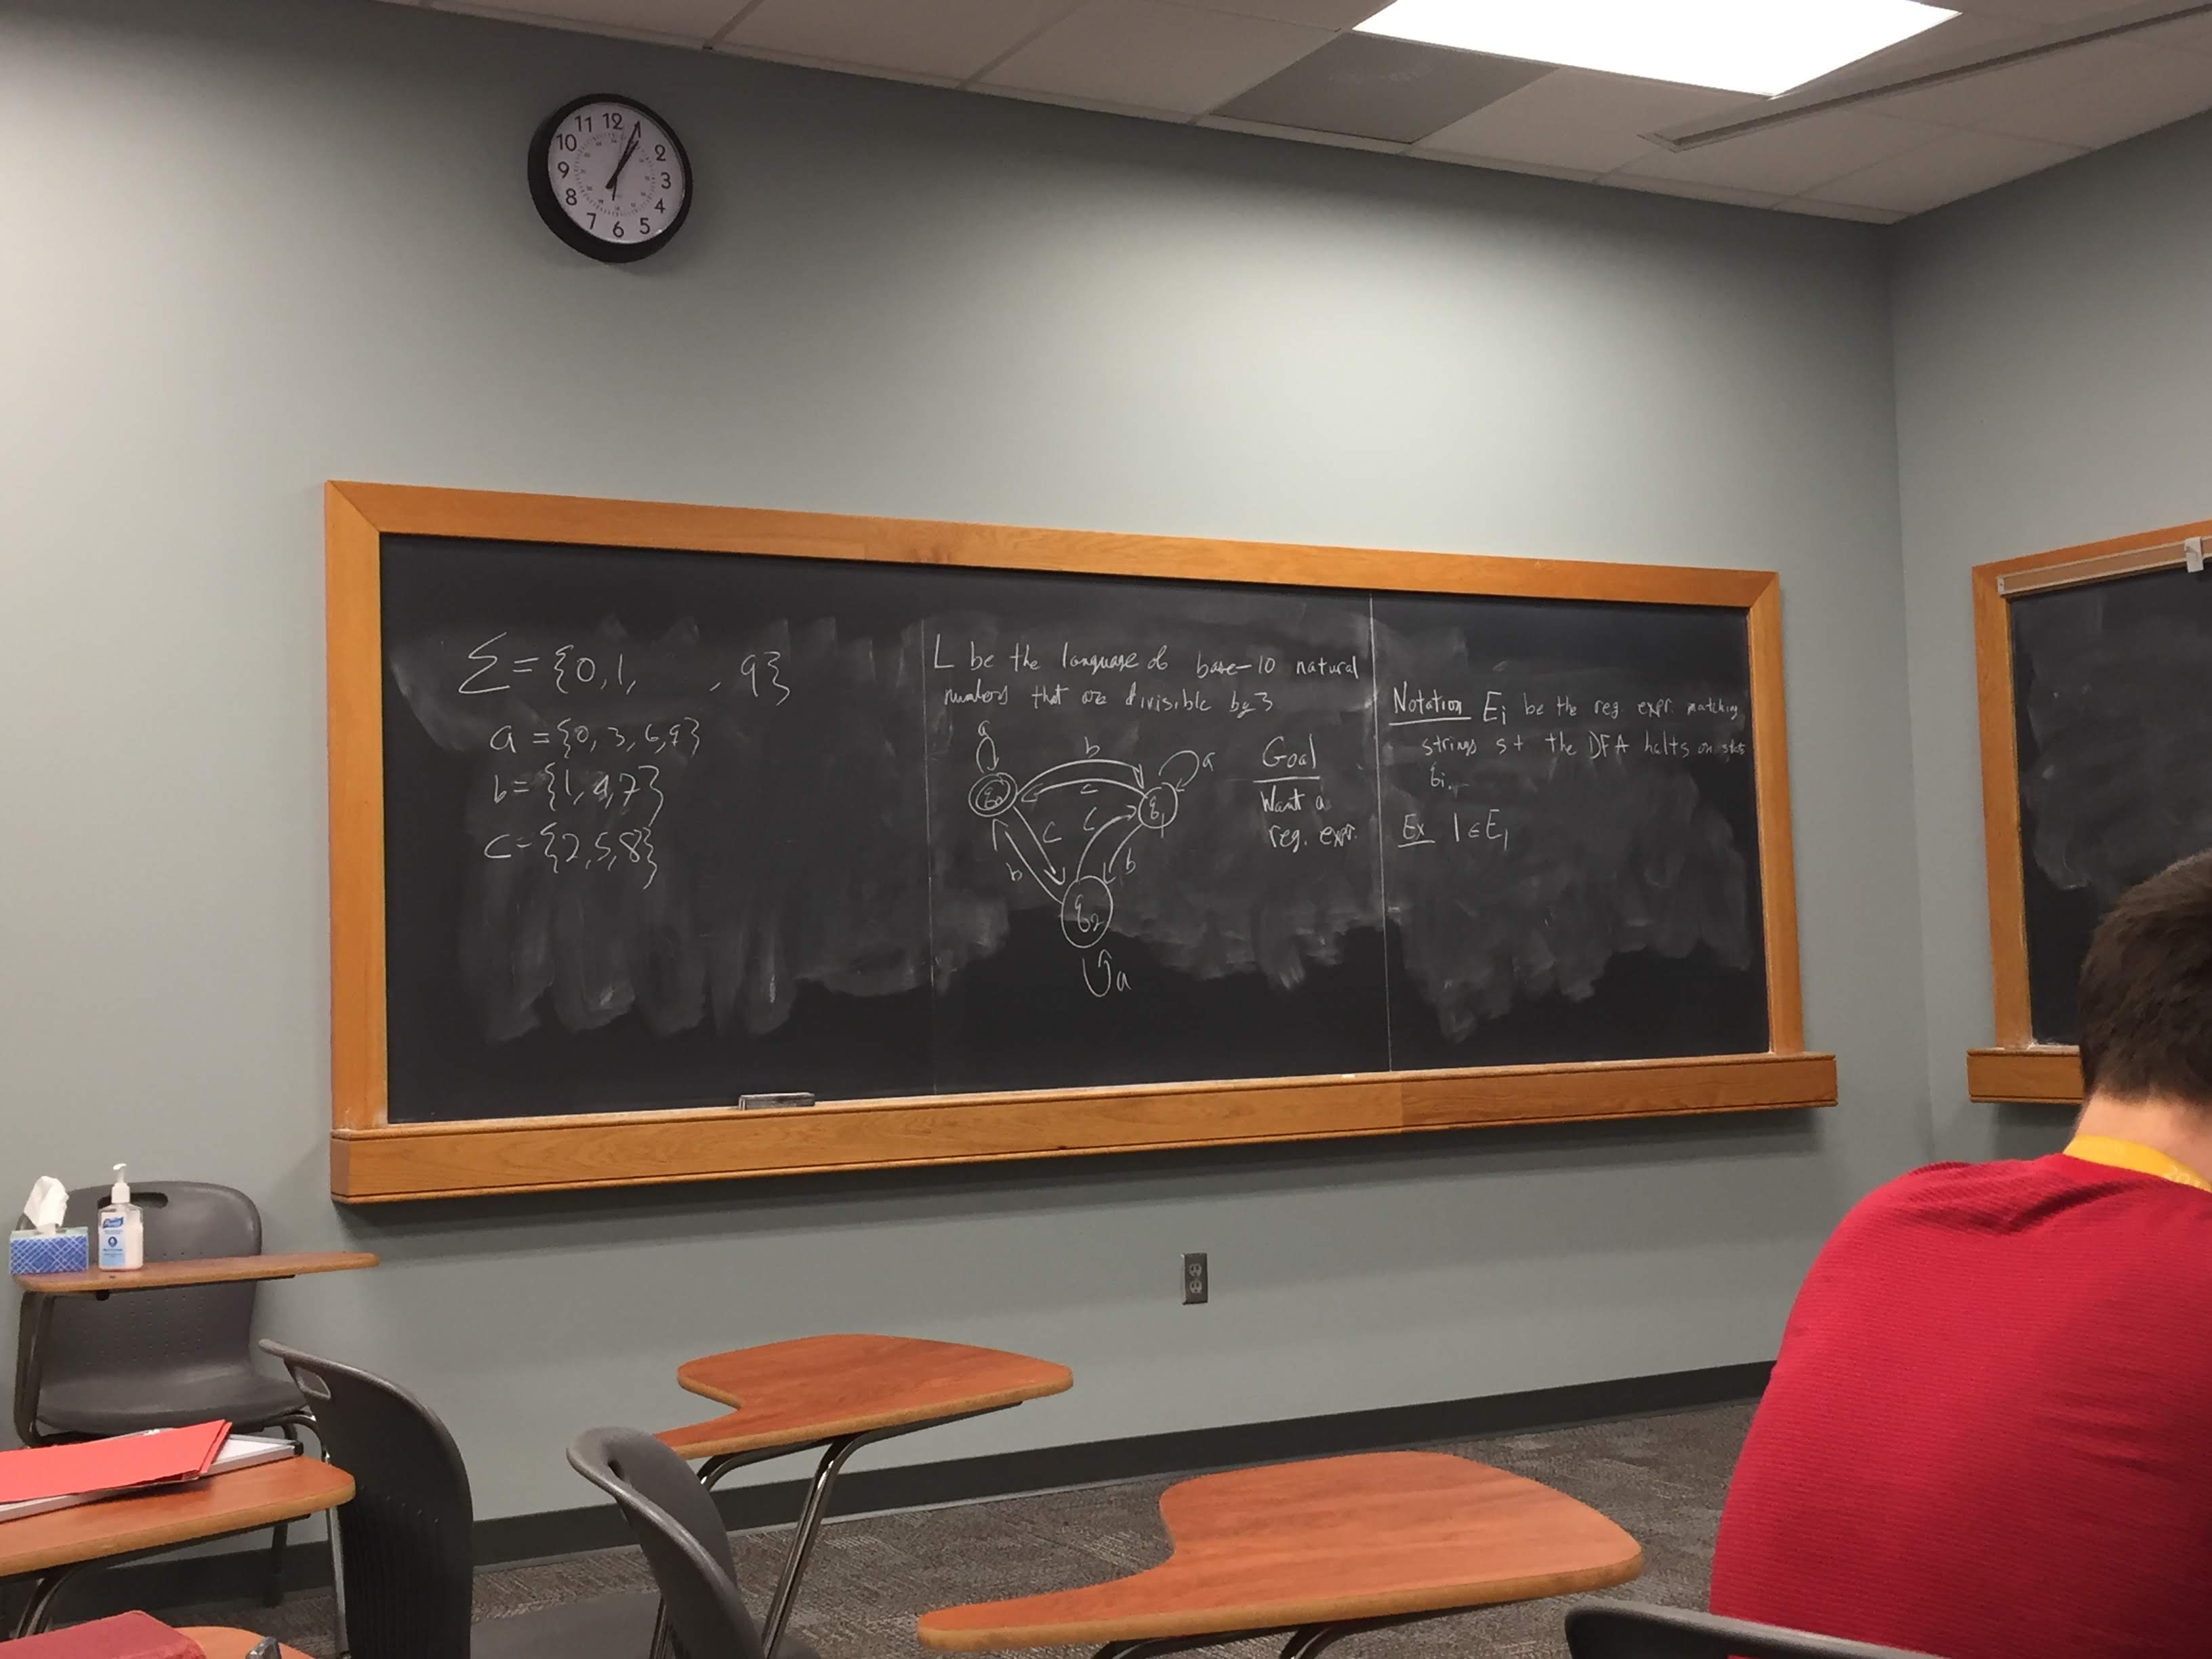 11 12
10 2
9 3
8 4
7 6 5
Σ = {0, 1, , 9}
a = {0, 3, 6, 9}
b = {1, 4, 7}
c = {2, 5, 8}
L be the language of base-10 natural
numbers that are divisible by 3
a
b
a
q0
c
q1
c
c
b
b
q2
a
Goal
Want a
reg. expr.
Notation Ei be the reg. expr. matching
strings st the DFA halts on state
qi.
Ex 1 ∈ E1